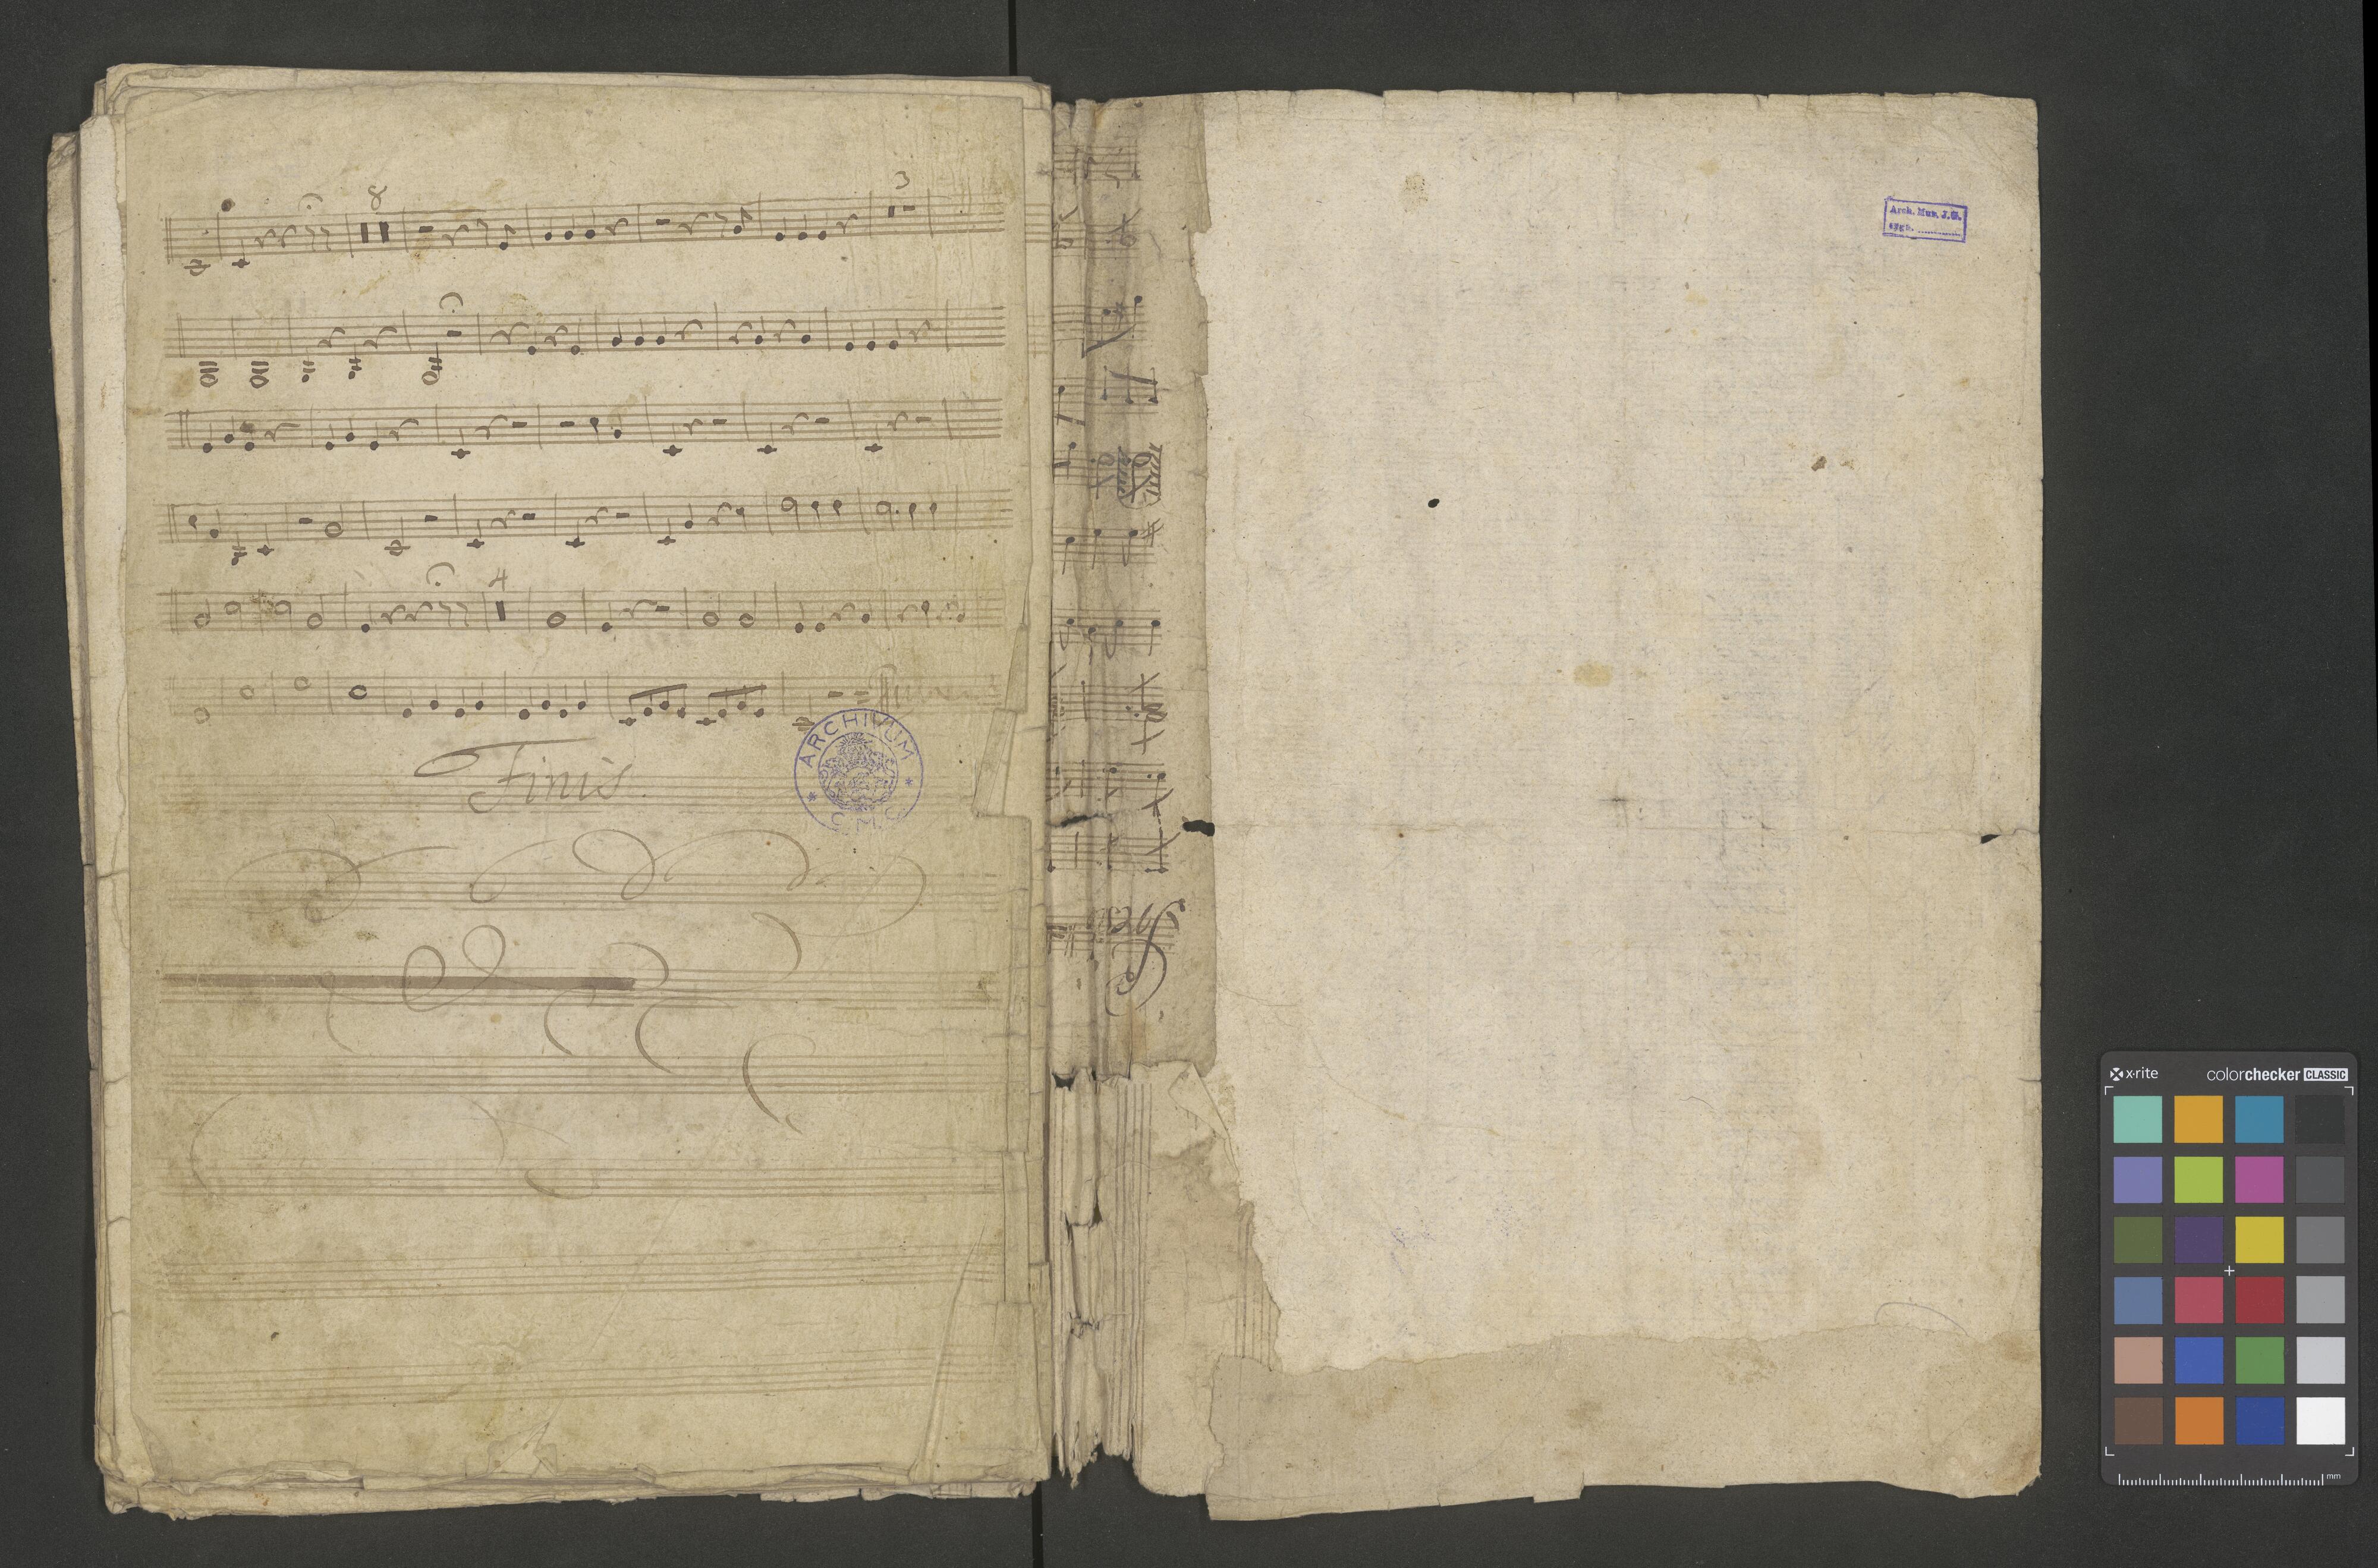 8
3
4
Finis.
ARCHIVUM
C. M. C.
Arch. Mus. J.G.
sygn.
x·rite
colorchecker CLASSIC
mm